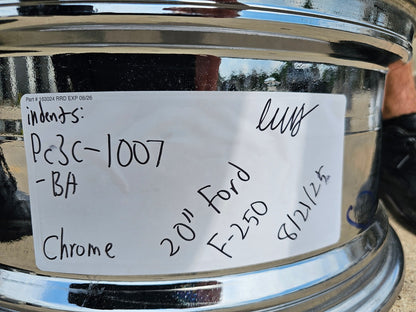 Part # 163024 RRD EXP 06/26
indents:
Pc3C-1007
-BA
Chrome
20" Ford
F-250
8/21/25